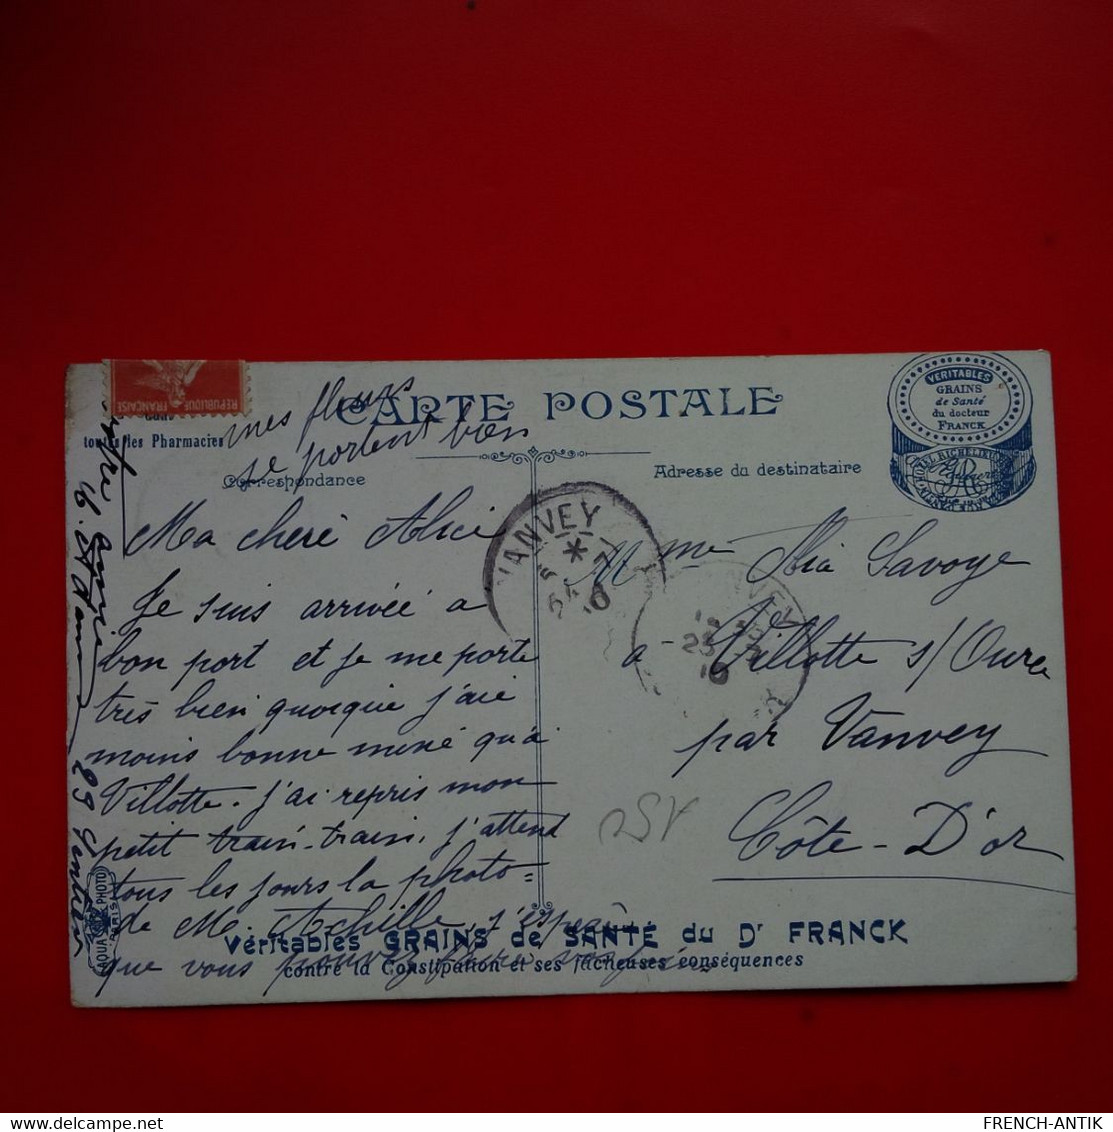 REPUBLIQUE FRANÇAISE
toutes les Pharmacies
CARTE POSTALE
Correspondance
Adresse du destinataire
VERITABLES
GRAINS
de Santé
du docteur
FRANCK
mes fleurs
se portent bien
Ma cheré Alice
Je suis arrivée a
bon port et je me porte
très bien quoique j'aie
moins bonne mine qu'à
Villotte. j'ai repris mon
petit train-train, j'attend
tous les jours la photo=
de M. Achille, j'espère
que vous pouvez
votre amie
VANVEY
Mme Alia Savoye
a Villotte s/Ource
par Vanvey
Côte-D'or
AQUA PHOTO
PARIS
Véritables GRAINS de SANTÉ du Dr FRANCK
contre la Constipation et ses fâcheuses conséquences
FRENCH-ANTIK